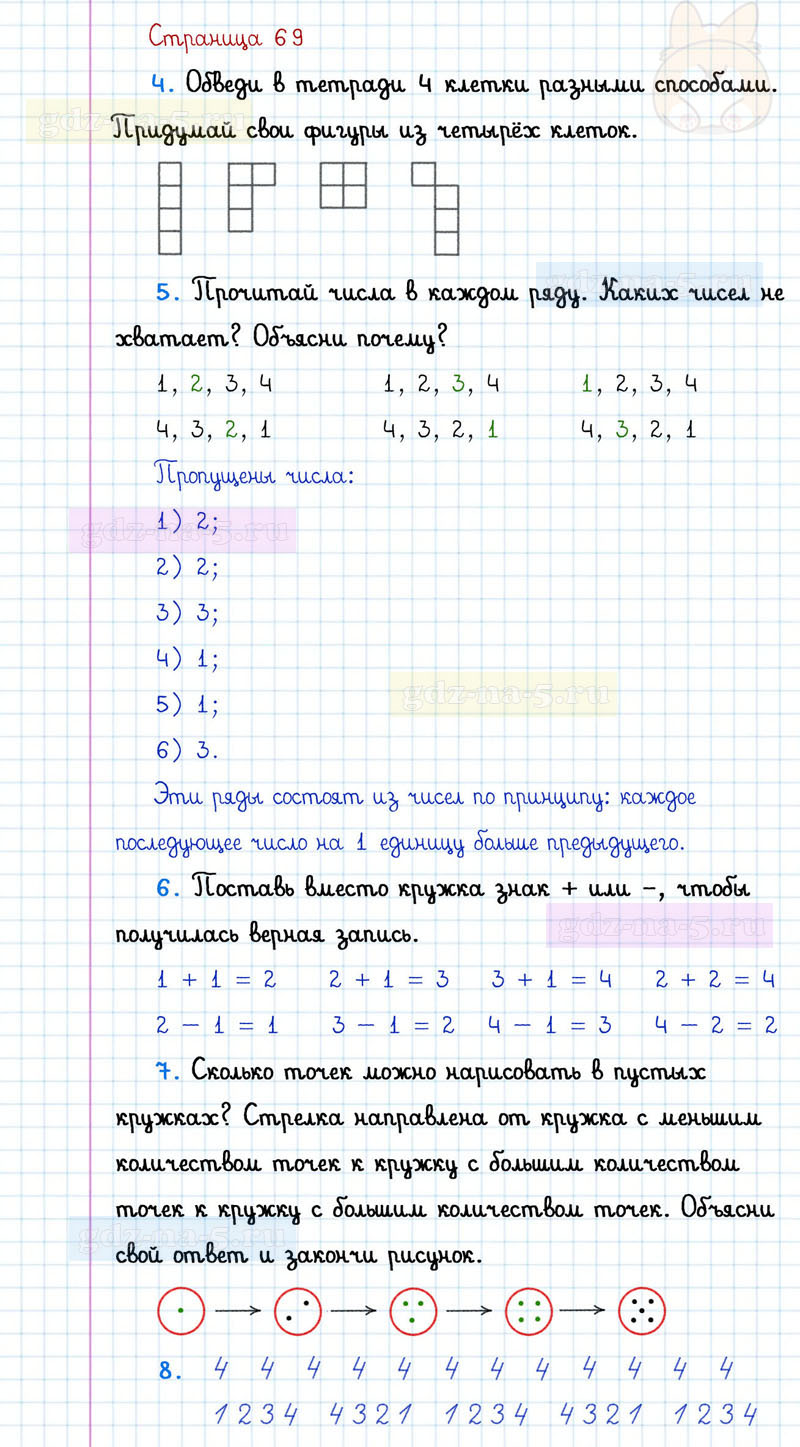 Страница 69
4. Обведи в тетради 4 клетки разными способами.
gdz-na-5.ru
Придумай свои фигуры из четырёх клеток.
gdz-na-5.ru
5. Прочитай числа в каждом ряду. Каких чисел не
хватает? Объясни почему?
1, 2, 3, 4 1, 2, 3, 4 1, 2, 3, 4
4, 3, 2, 1 4, 3, 2, 1 4, 3, 2, 1
Пропущены числа:
1) 2;
gdz-na-5.ru
2) 2;
3) 3;
4) 1;
5) 1;
gdz-na-5.ru
6) 3.
Эти ряды состоят из чисел по принципу: каждое
последующее число на 1 единицу больше предыдущего.
6. Поставь вместо кружка знак + или -, чтобы
получилась верная запись.
gdz-na-5.ru
1 + 1 = 2 2 + 1 = 3 3 + 1 = 4 2 + 2 = 4
2 - 1 = 1 3 - 1 = 2 4 - 1 = 3 4 - 2 = 2
7. Сколько точек можно нарисовать в пустых
кружках? Стрелка направлена от кружка с меньшим
количеством точек к кружку с большим количеством
точек к кружку с большим количеством точек. Объясни
gdz-na-5.ru
свой ответ и закончи рисунок.
8. 4 4 4 4 4 4 4 4 4 4 4 4
1 2 3 4 4 3 2 1 1 2 3 4 4 3 2 1 1 2 3 4